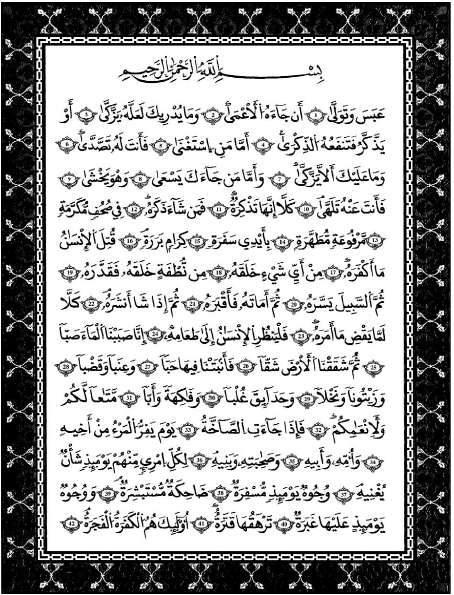 بِسْمِ اللَّهِ الرَّحْمَٰنِ الرَّحِيمِ
عَبَسَ وَتَوَلَّىٰٓ ١ أَن جَآءَهُ الْأَعْمَىٰ ٢ وَمَا يُدْرِيكَ لَعَلَّهُ يَزَّكَّىٰٓ ٣ أَوْ
يَذَّكَّرُ فَتَنفَعَهُ الذِّكْرَىٰٓ ٤ أَمَّا مَنِ اسْتَغْنَىٰ ٥ فَأَنتَ لَهُ تَصَدَّىٰ ٦
وَمَا عَلَيْكَ أَلَّا يَزَّكَّىٰ ٧ وَأَمَّا مَن جَآءَكَ يَسْعَىٰ ٨ وَهُوَ يَخْشَىٰ ٩
فَأَنتَ عَنْهُ تَلَهَّىٰ ١٠ كَلَّآ إِنَّهَا تَذْكِرَةٌ ١١ فَمَن شَآءَ ذَكَرَهُ ١٢ فِي صُحُفٍ مُّكَرَّمَةٍ
١٣ مَّرْفُوعَةٍ مُّطَهَّرَةٍ ١٤ بِأَيْدِي سَفَرَةٍ ١٥ كِرَامٍ بَرَرَةٍ ١٦ قُتِلَ الْإِنسَانُ
مَآ أَكْفَرَهُ ١٧ مِنْ أَيِّ شَيْءٍ خَلَقَهُ ١٨ مِن نُّطْفَةٍ خَلَقَهُ فَقَدَّرَهُ ١٩
ثُمَّ السَّبِيلَ يَسَّرَهُ ٢٠ ثُمَّ أَمَاتَهُ فَأَقْبَرَهُ ٢١ ثُمَّ إِذَا شَآءَ أَنشَرَهُ ٢٢ كَلَّا
لَمَّا يَقْضِ مَآ أَمَرَهُ ٢٣ فَلْيَنظُرِ الْإِنسَانُ إِلَىٰ طَعَامِهِ ٢٤ أَنَّا صَبَبْنَا الْمَآءَ صَبًّا
٢٥ ثُمَّ شَقَقْنَا الْأَرْضَ شَقًّا ٢٦ فَأَنبَتْنَا فِيهَا حَبًّا ٢٧ وَعِنَبًا وَقَضْبًا ٢٨
وَزَيْتُونًا وَنَخْلًا ٢٩ وَحَدَآئِقَ غُلْبًا ٣٠ وَفَاكِهَةً وَأَبًّا ٣١ مَّتَاعًا لَّكُمْ
وَلِأَنْعَامِكُمْ ٣٢ فَإِذَا جَآءَتِ الصَّآخَّةُ ٣٣ يَوْمَ يَفِرُّ الْمَرْءُ مِنْ أَخِيهِ
٣٤ وَأُمِّهِ وَأَبِيهِ ٣٥ وَصَاحِبَتِهِ وَبَنِيهِ ٣٦ لِكُلِّ امْرِئٍ مِّنْهُمْ يَوْمَئِذٍ شَأْنٌ
يُغْنِيهِ ٣٧ وُجُوهٌ يَوْمَئِذٍ مُّسْفِرَةٌ ٣٨ ضَاحِكَةٌ مُّسْتَبْشِرَةٌ ٣٩ وَوُجُوهٌ
يَوْمَئِذٍ عَلَيْهَا غَبَرَةٌ ٤٠ تَرْهَقُهَا قَتَرَةٌ ٤١ أُولَٰٓئِكَ هُمُ الْكَفَرَةُ الْفَجَرَةُ ٤٢